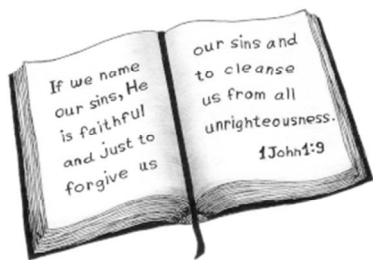 If we name
our sins, He
is faithful
and just to
forgive us
our sins and
to cleanse
us from all
unrighteousness.
1John1:9